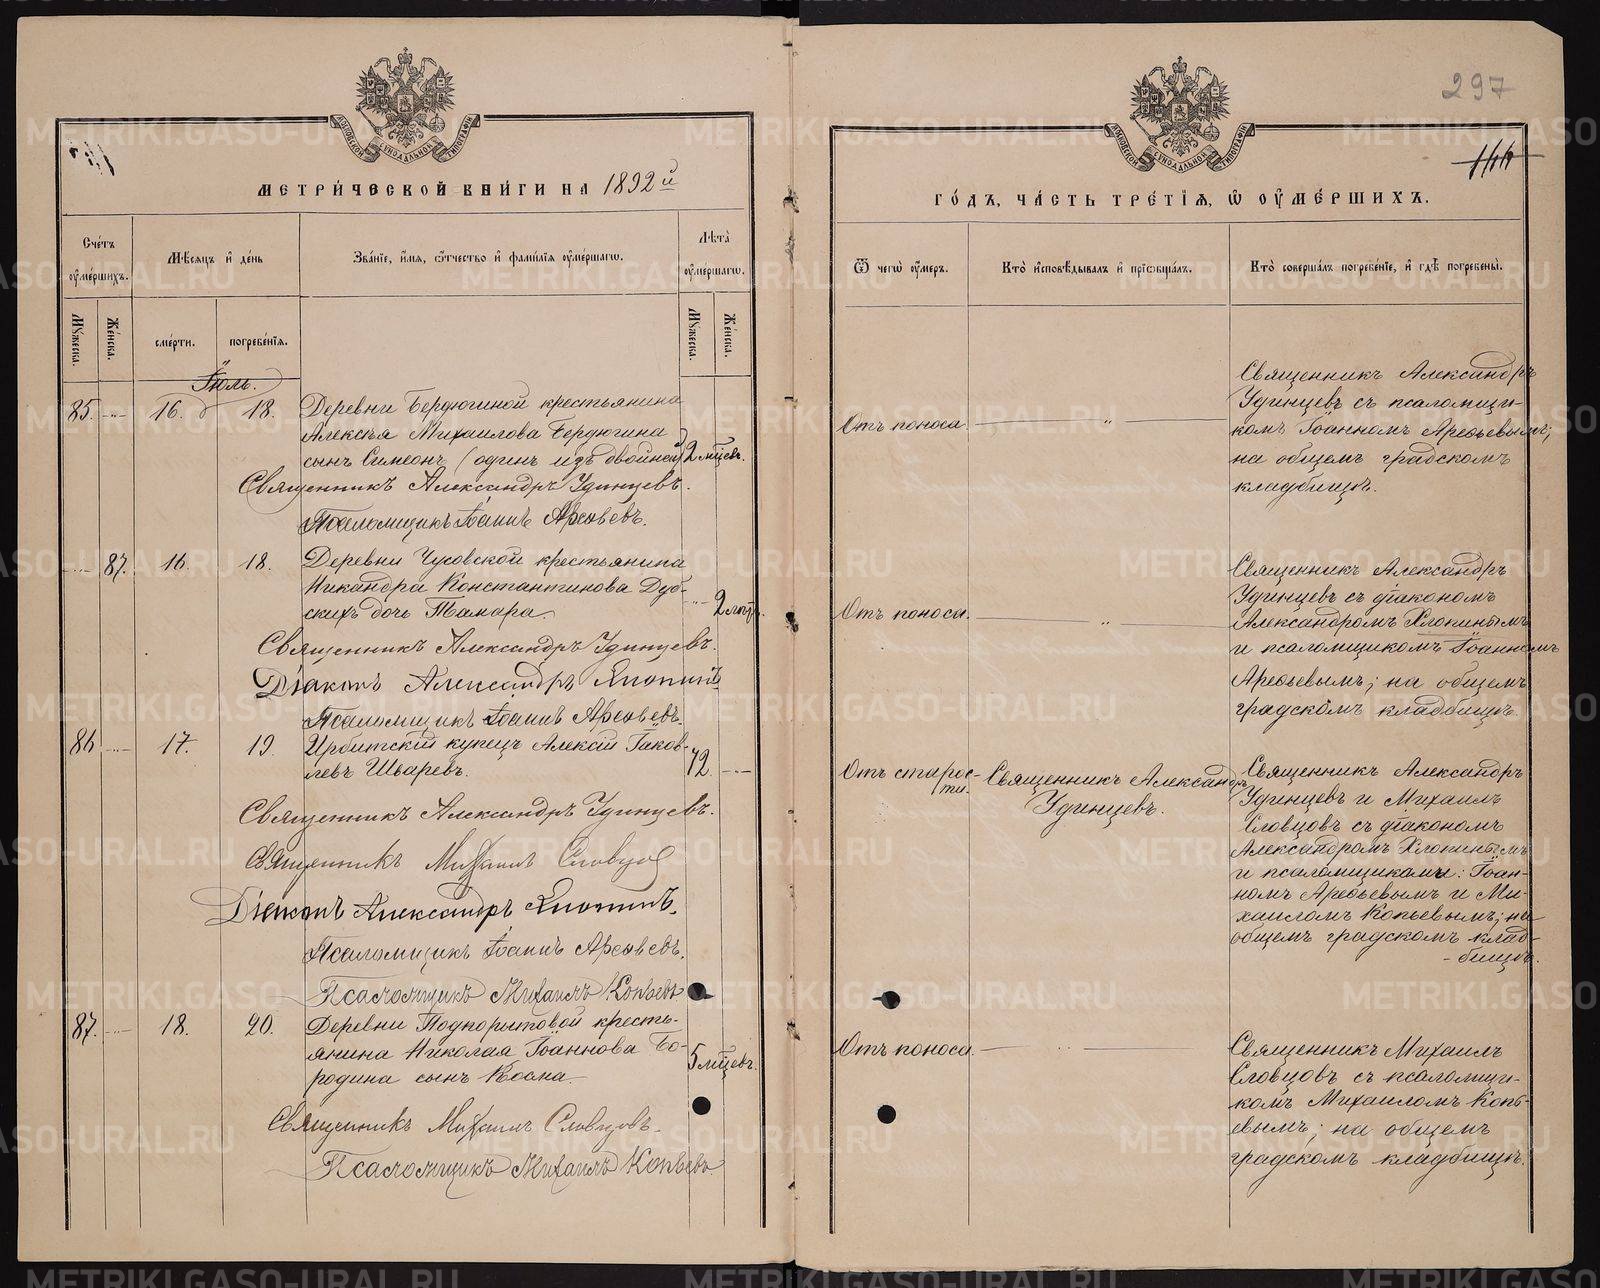 МЕТРИ́ЧЕСКОЙ КНИ́ГИ НА 1892 й
Счетъ оумершихъ.
Мѣсяцъ и день
Званіе, имя, отчество и фамилія оумершагѡ.
Лѣта оумершагѡ.
Мꙋжеска.
Женска.
смерти.
погребенія.
Мꙋжеска.
Женска.
Іюль.
85. 16. 18. Деревни Бердюгиной крестьянина
Алексѣя Михаилова Бердюгина
сынъ Симеонъ (одинъ изъ двойней) 2 мѣсяцевъ.
Священникъ Александръ Удинцевъ.
Псаломщикъ Іоаннъ Арефьевъ.
87. 16. 18. Деревни Чусовской крестьянина
Никандра Константинова Дуб-
скихъ дочь Тамара.
Священникъ Александръ Удинцевъ.
Діаконъ Александръ Хлопинъ
Псаломщикъ Іоаннъ Арефьевъ.
86 17. 19. Ирбитскій купецъ Алексій Іаков-
левъ Шваревъ. 72.
Священникъ Александръ Удинцевъ.
Священникъ Михаилъ Словцовъ
Діаконъ Александръ Хлопинъ.
Псаломщикъ Іоаннъ Арефьевъ.
Псаломщикъ Михаилъ Копьевъ
87. 18. 20. Деревни Подкорытовой кресть-
янина Николая Іоаннова Бо-
родина сынъ Косма. 5 мѣсяцевъ.
Священникъ Михаилъ Словцовъ.
Псаломщикъ Михаилъ Копьевъ
297
144
ГО́ДЪ, ЧА́СТЬ ТРЕ́ТІЯ, Ѡ ОУМЕ́РШИХЪ.
Ѿ чегѡ оумеръ.
Кто исповѣдывалъ и пріобщалъ.
Кто совершалъ погребеніе, и гдѣ погребены.
Отъ поноса.
Священникъ Александръ
Удинцевъ съ псаломщи-
комъ Іоанномъ Арефьевымъ;
на общемъ градскомъ
кладбищѣ.
Отъ поноса.
Священникъ Александръ
Удинцевъ съ діакономъ
Александромъ Хлопинымъ
и псаломщикомъ Іоанномъ
Арефьевымъ; на общемъ
градскомъ кладбищѣ.
Отъ старос-
ти.
Священникъ Александръ
Удинцевъ.
Священникъ Александръ
Удинцевъ и Михаилъ
Словцовъ съ діакономъ
Александромъ Хлопинымъ
и псаломщиками: Іоан-
номъ Арефьевымъ и Ми-
хаиломъ Копьевымъ; на
общемъ градскомъ клад-
бищѣ.
Отъ поноса.
Священникъ Михаилъ
Словцовъ съ псаломщи-
комъ Михаиломъ Копь-
евымъ; на общемъ
градскомъ кладбищѣ.
METRIKI.GASO-URAL.RU